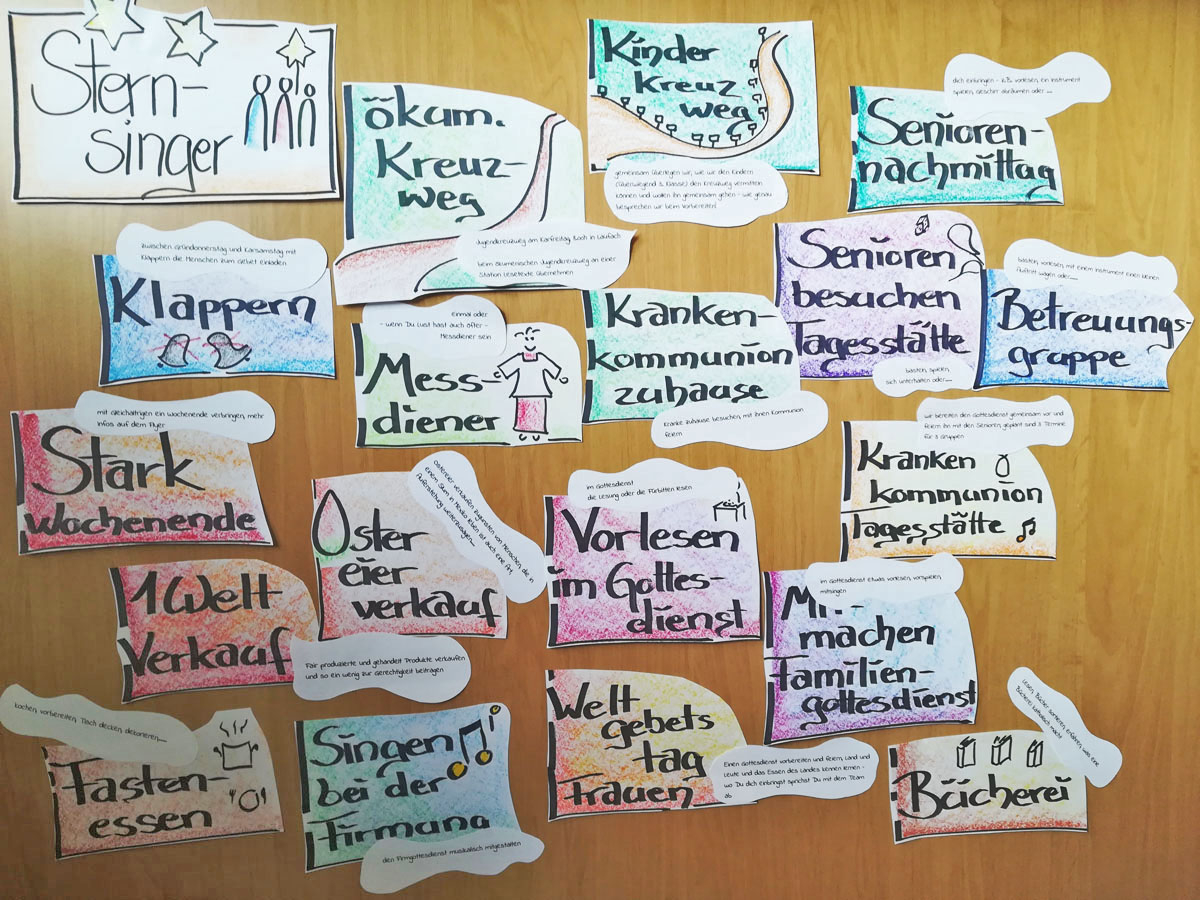 Stern-
singer
ökum.
Kreuz-
weg
Jugendkreuzweg am Karfreitag 15.00h in Laufach
beim ökumenischen Jugendkreuzweg an einer
Station Lesetexte übernehmen
Kinder
kreuz
weg
gemeinsam überlegen wir, wie wir den Kindern
(überwiegend 3. Klasse) den Kreuzweg vermitteln
können und wollen ihn gemeinsam gehen - wie genau
besprechen wir beim Vorbereiten!
dich einbringen - z.B. vorlesen, ein Instrument
spielen, Geschirr abräumen oder ....
Senioren-
nachmittag
zwischen Gründonnerstag und Karsamstag mit
Klappern die Menschen zum Gebet einladen
Klappern
Einmal oder
- wenn Du Lust hast auch öfter -
Messdiener sein
Mess-
diener
Kranken-
kommunion
zuhause
Kranke zuhause besuchen, mit ihnen Kommunion
feiern
Senioren
besuchen
Tagesstätte
basteln, spielen,
sich unterhalten oder....
basteln, vorlesen, mit einem Instrument einen kleinen
Auftritt wagen oder....
Betreuungs-
gruppe
mit Gleichaltrigen ein Wochenende verbringen, mehr
Infos auf dem Flyer
Stark
wochenende
Oster
eier
verkauf
Ostereier verkaufen zugunsten von Menschen, die in
einem Slum in Mexiko leben ist auch eine Art,
Auferstehung weiterzusagen....
im Gottesdienst
die Lesung oder die Fürbitten lesen
Vorlesen
im Gottes-
dienst
wir bereiten den Gottesdienst gemeinsam vor und
feiern ihn mit den Senioren, geplant sind 3 Termine
für 3 Gruppen
Kranken
kommunion
Tagesstätte
1 Welt
Verkauf
Fair produzierte und gehandelt Produkte verkaufen
und so ein wenig zur Gerechtigkeit beitragen
im Gottesdienst etwas vorlesen, vorspielen,
mitsingen
Mit-
machen
Familien-
gottesdienst
kochen, vorbereiten, Tisch decken, dekorieren,....
Fasten-
essen
Singen
bei der
Firmung
den Firmgottesdienst musikalisch mitgestalten
Welt
gebets
tag
Frauen
Einen Gottesdienst vorbereiten und feiern, Land und
Leute und das Essen des Landes kennen lernen -
wo Du dich einbringst sprichst Du mit dem Team
ab
Lesen, Bücher sortieren, erfahren, was eine
Bücherei
Bücherei